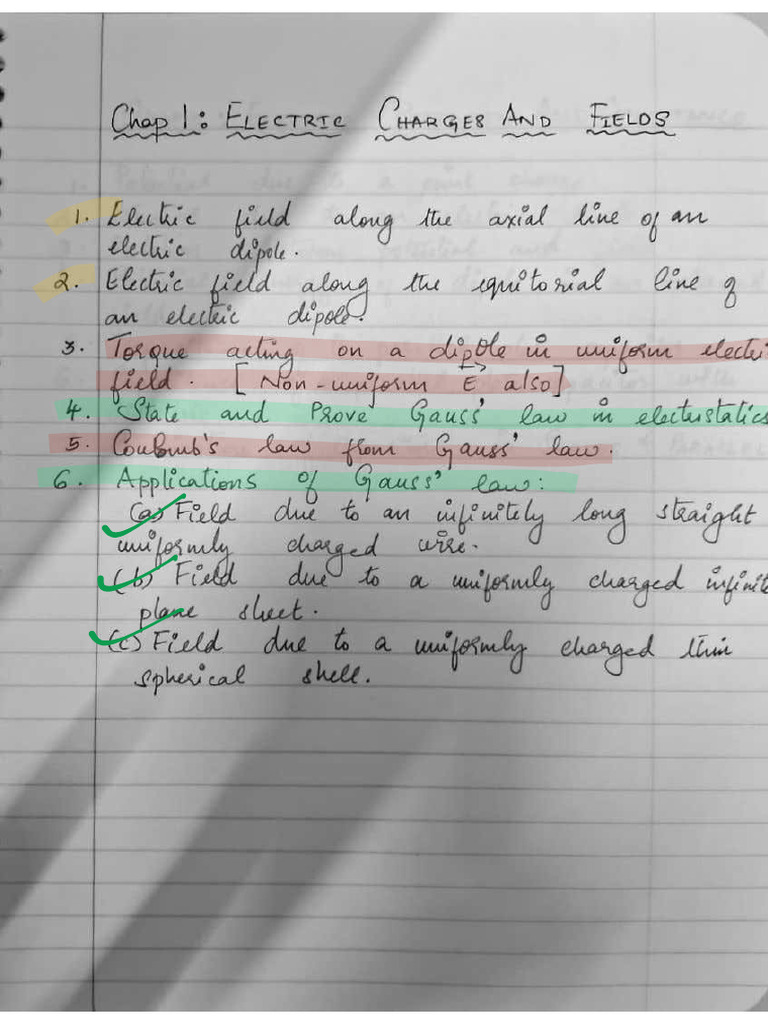 Chap 1: ELECTRIC CHARGES AND FIELDS
1. Electric field along the axial line of an
electric dipole.
2. Electric field along the equitorial line of
an electric dipole.
3. Torque acting on a dipole in uniform electri
field. [Non-uniform E⃗ also]
4. State and Prove Gauss' law in electrostatics
5. Coulomb's law from Gauss' law.
6. Applications of Gauss' law:
(a) Field due to an infinitely long straight
uniformly charged wire.
(b) Field due to a uniformly charged infinite
plane sheet.
(c) Field due to a uniformly charged thin
spherical shell.